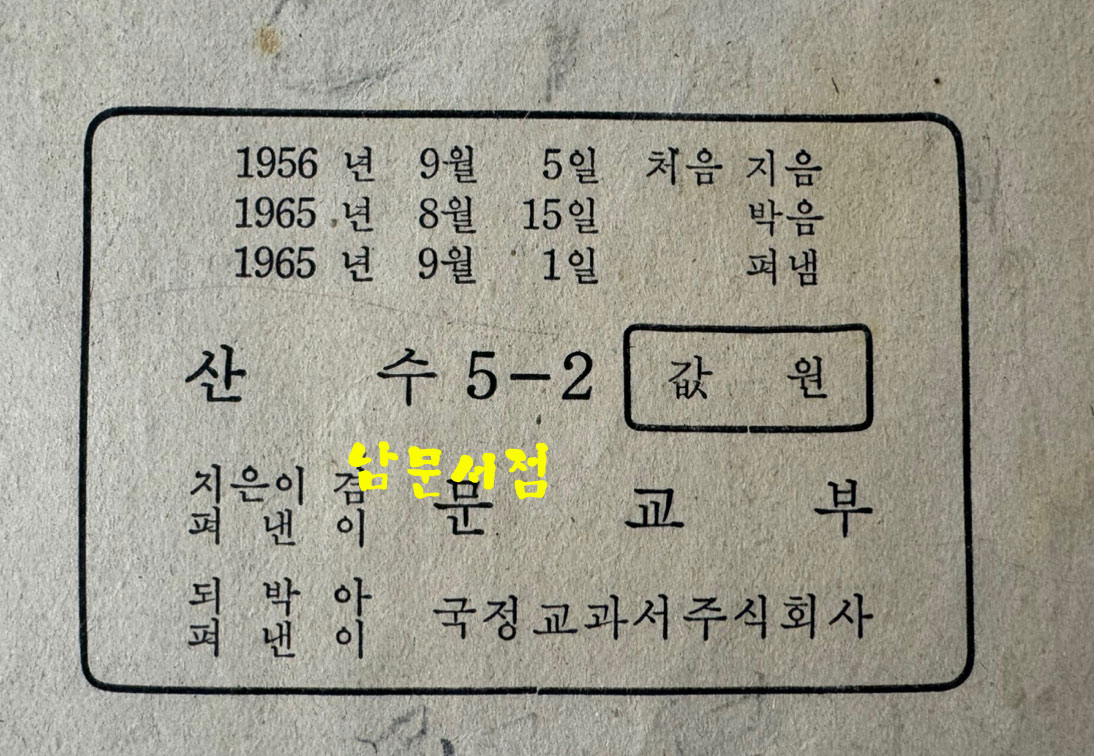 1956 년 9월 5일 처음 지음
1965 년 8월 15일 박음
1965 년 9월 1일 펴냄
산 수 5-2 값 원
남문서점
지은이 겸
펴 낸 이
문 교 부
되 박 아
펴 낸 이
국정교과서주식회사